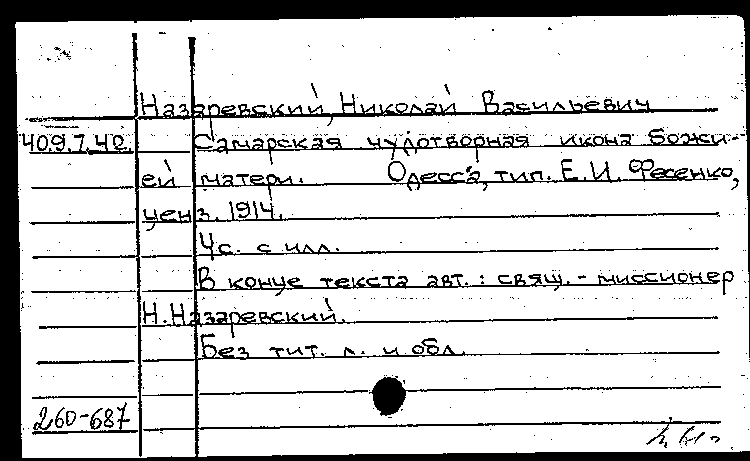 Назаревский, Николай Васильевич
409.7.42. Самарская чудотворная икона Божи-
ей матери. Одесса, тип. Е.И. Фесенко,
ценз. 1914.
4с. с илл.
В конце текста авт.: свящ.-миссионер
Н.Назаревский.
Без тит. л. и обл.
260-687